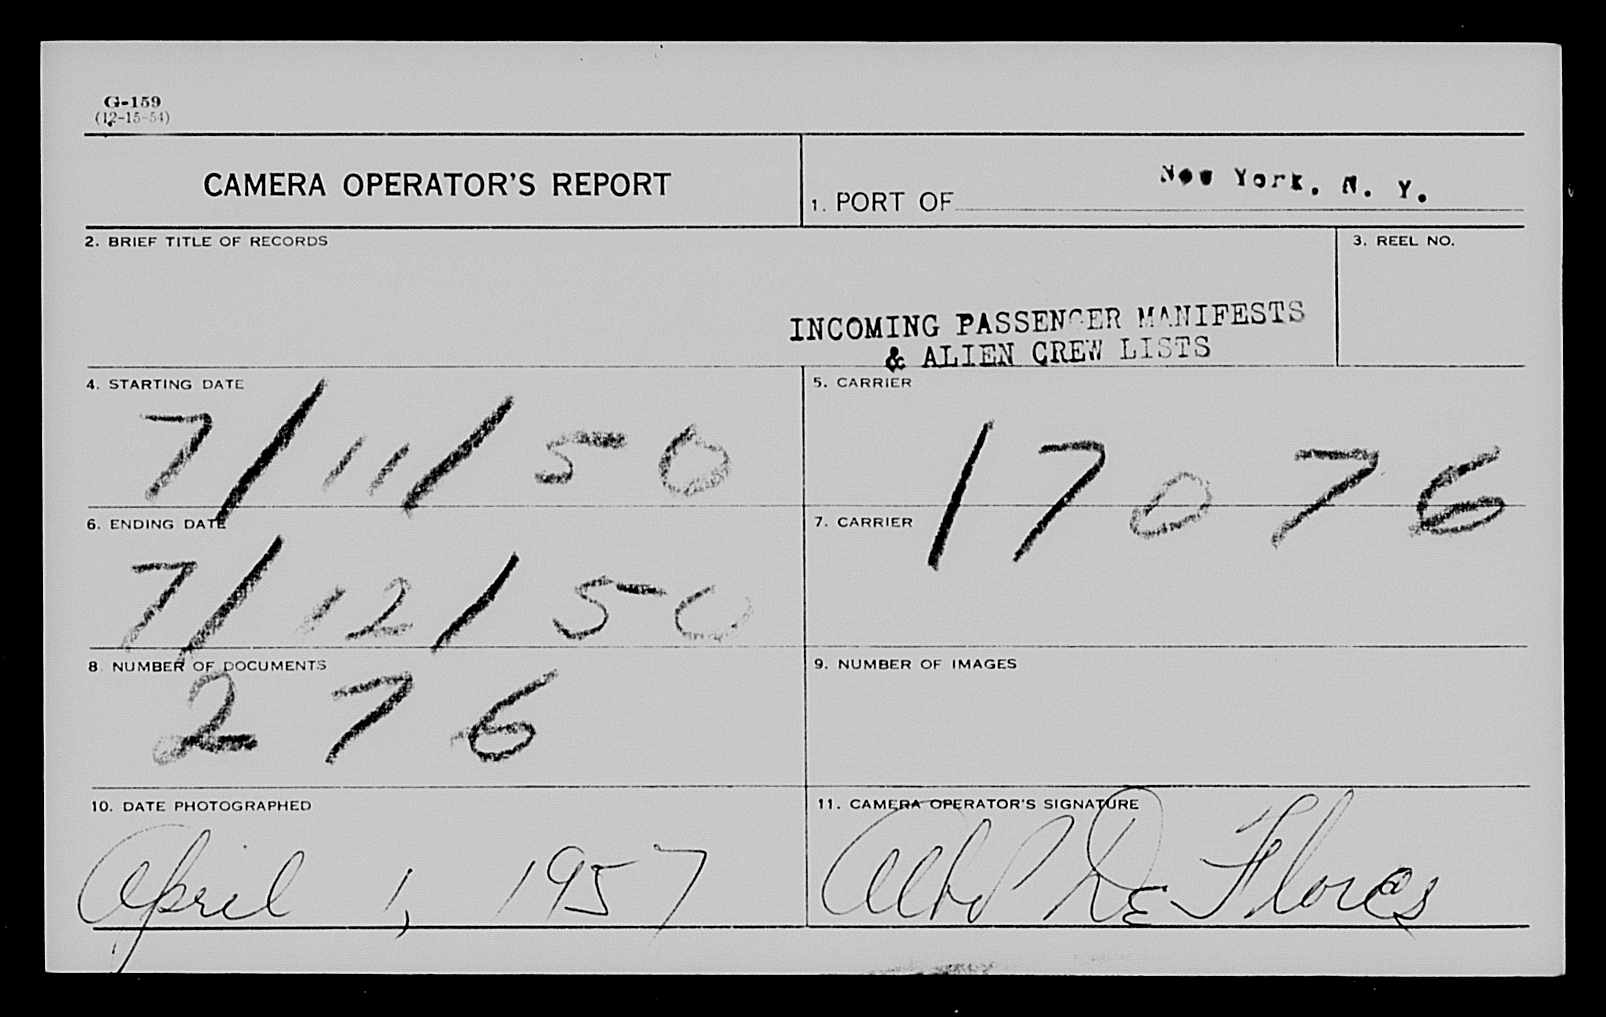 G-159
(12-15-54)
CAMERA OPERATOR'S REPORT
1. PORT OF New York, N. Y.
2. BRIEF TITLE OF RECORDS
INCOMING PASSENGER MANIFESTS
& ALIEN CREW LISTS
3. REEL NO.
4. STARTING DATE
7/11/50
5. CARRIER
17076
6. ENDING DATE
7/12/50
7. CARRIER
8 NUMBER OF DOCUMENTS
276
9. NUMBER OF IMAGES
10. DATE PHOTOGRAPHED
April 1, 1957
11. CAMERA OPERATOR'S SIGNATURE
De Flores